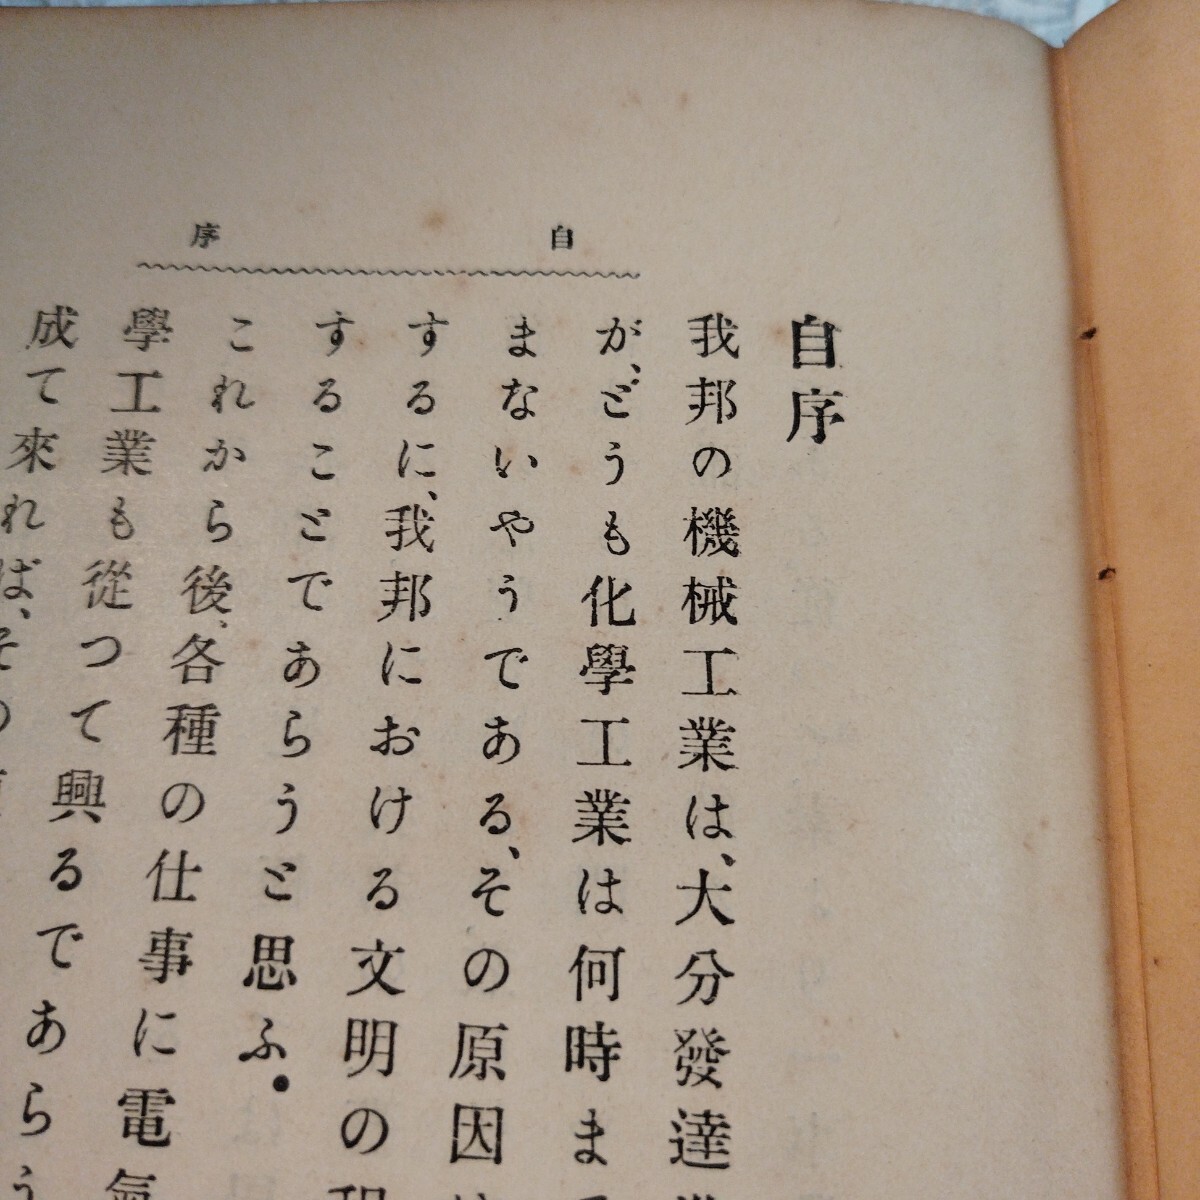 自序
自序
我邦の機械工業は、大分發達
が、どうも化學工業は何時ま
まないやうである、その原因
するに、我邦における文明の
することであらうと思ふ。
これから後、各種の仕事に電氣
學工業も從つて興るであらう
成て來れば、その